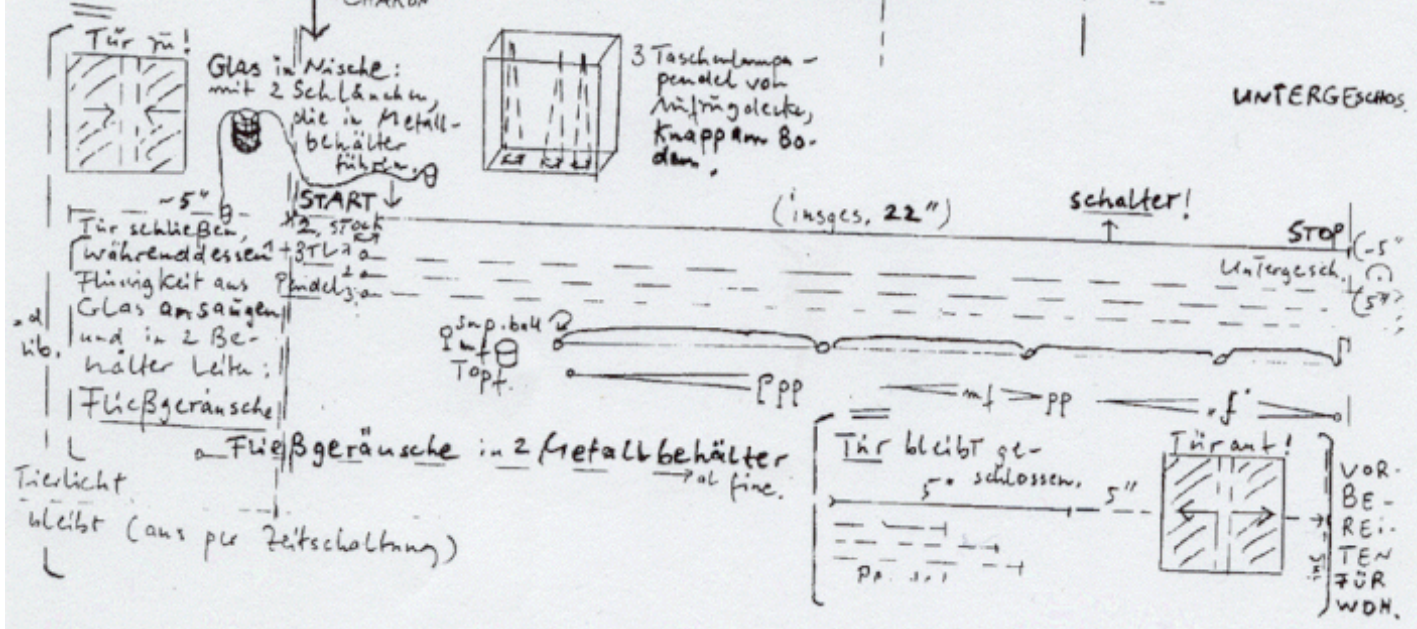 CHARON
Tür zu!
Glas in Nische:
mit 2 Schläuchen,
die in Metall-
behälter
führen.
3 Taschenlampen-
pendel von
Aufzugdecke,
Knapp am Bo-
den.
UNTERGESCHOS.
~5"
START
2. Stock
(insges. 22")
schalter!
STOP
(~5"
Untergesch.
(5")
Tür schließen,
währenddessen
Flüssigkeit aus
Glas ansaugen
und in 2 Be-
hälter Leiten:
Fließgeräusche
+3TL 1
2
Pendel 3
lib.
mf
Topf.
ppp
mf
pp
"f"
Fließgeräusche in 2 Metallbehälter
al fine.
bleibt (aus per Zeitschaltung)
Tür bleibt ge-
schlossen.
5"
5"
Tür auf!
VOR-
BE-
REI-
TEN
FÜR
WDH.